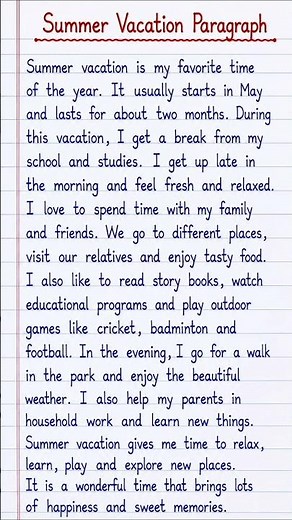 Summer Vacation Paragraph
Summer vacation is my favorite time
of the year. It usually starts in May
and lasts for about two months. During
this vacation, I get a break from my
school and studies. I get up late in
the morning and feel fresh and relaxed.
I love to spend time with my family
and friends. We go to different places,
visit our relatives and enjoy tasty food.
I also like to read story books, watch
educational programs and play outdoor
games like cricket, badminton and
football. In the evening, I go for a walk
in the park and enjoy the beautiful
weather. I also help my parents in
household work and learn new things.
Summer vacation gives me time to relax,
learn, play and explore new places.
It is a wonderful time that brings lots
of happiness and sweet memories.